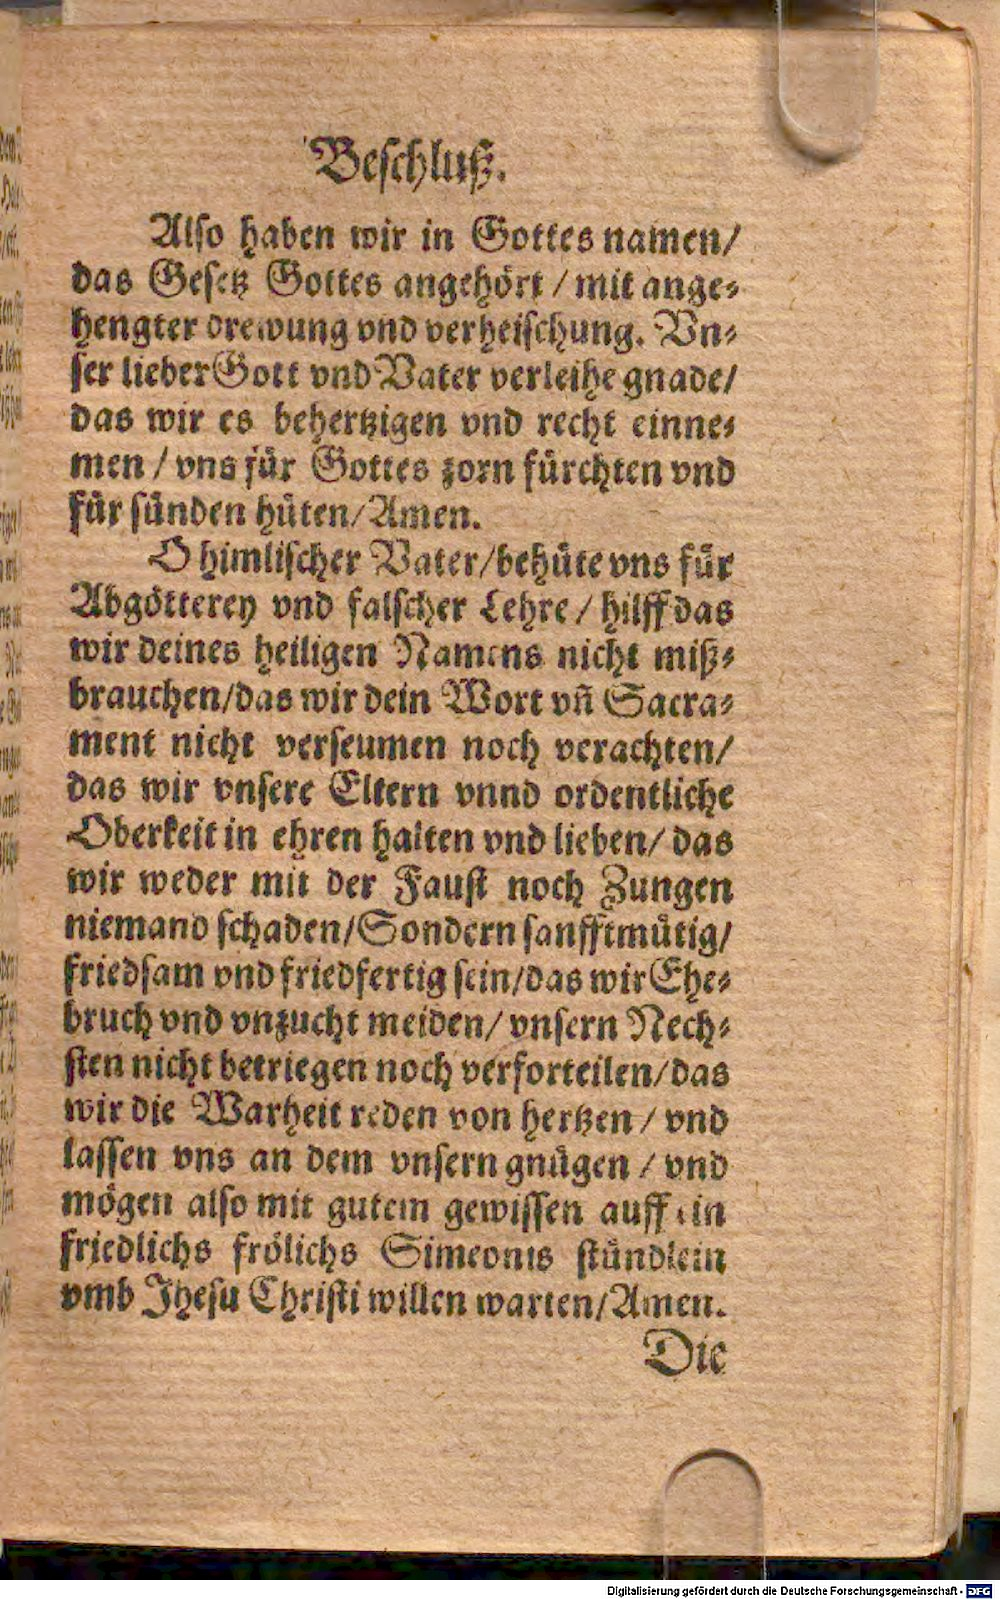 Beschluß.
Also haben wir in Gottes namen/
das Gesetz Gottes angehört / mit ange⸗
hengter drewung vnd verheischung. Vn⸗
ser lieber Gott vnd Vater verleihe gnade/
das wir es behertzigen vnd recht einne⸗
men / vns für Gottes zorn fürchten vnd
für sünden hüten/Amen.
O himlischer Vater/behüte vns für
Abgötterey vnd falscher Lehre / hilff das
wir deines heiligen Namens nicht miß⸗
brauchen/das wir dein Wort vñ Sacra⸗
ment nicht verseumen noch verachten/
das wir vnsere Eltern vnnd ordentliche
Oberkeit in ehren halten vnd lieben/ das
wir weder mit der Faust noch Zungen
niemand schaden/Sondern sanfftmütig/
friedsam vnd friedfertig sein/das wir Ehe⸗
bruch vnd vnzucht meiden/ vnsern Nech⸗
sten nicht betriegen noch verforteilen/das
wir die Warheit reden von hertzen / vnd
lassen vns an dem vnsern gnügen / vnd
mögen also mit gutem gewissen auff ein
friedlichs frölichs Simeonis stündlein
vmb Jhesu Christi willen warten/Amen.
Die
Digitalisierung gefördert durch die Deutsche Forschungsgemeinschaft - DFG